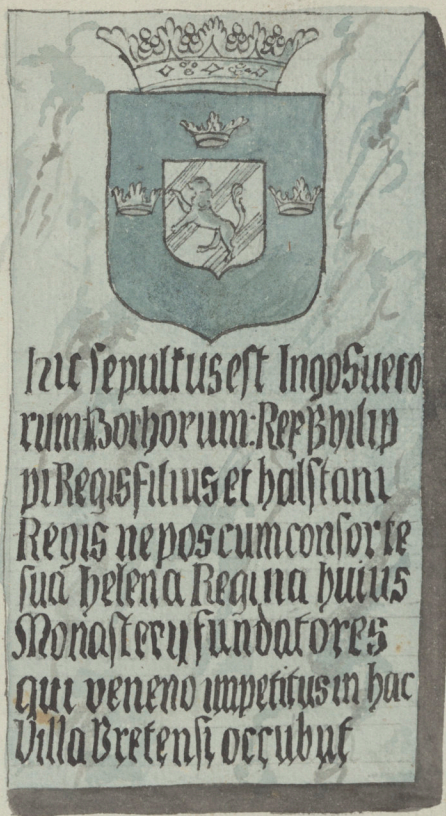 hic sepultus est Ingo Sueco
rum Gothorum: Rex Philip
pi Regis filius et halstani
Regis nepos cum consorte
sua helena Regina huius
Monastery fundatores
qui veneno impetitus in hac
Villa Vretensi occubut